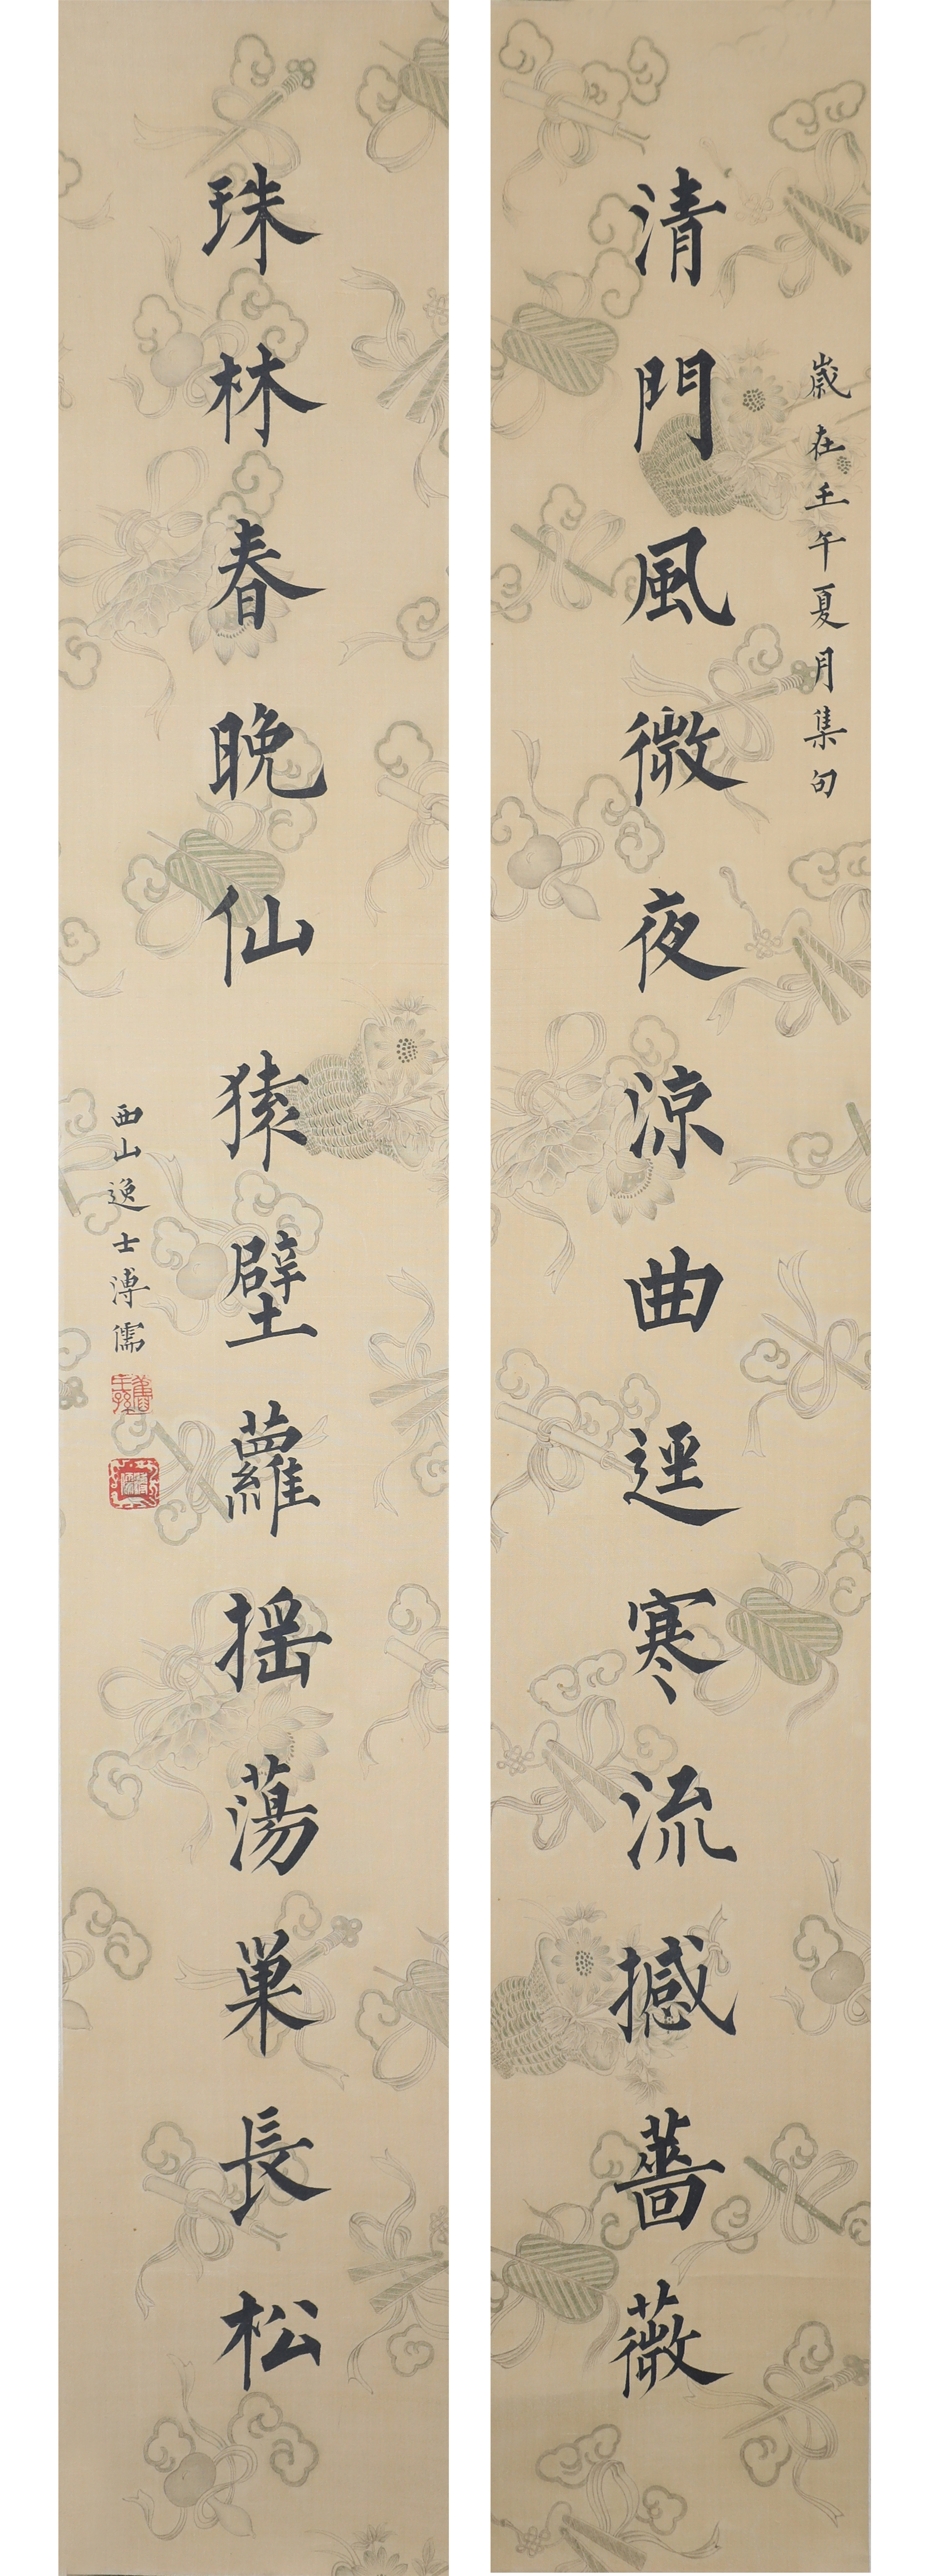 歲在壬午夏月集句
清門風微夜涼曲逕寒流撼薔薇
珠林春晚仙猿壁蘿搖蕩巢長松
西山逸士溥儒
舊王孫